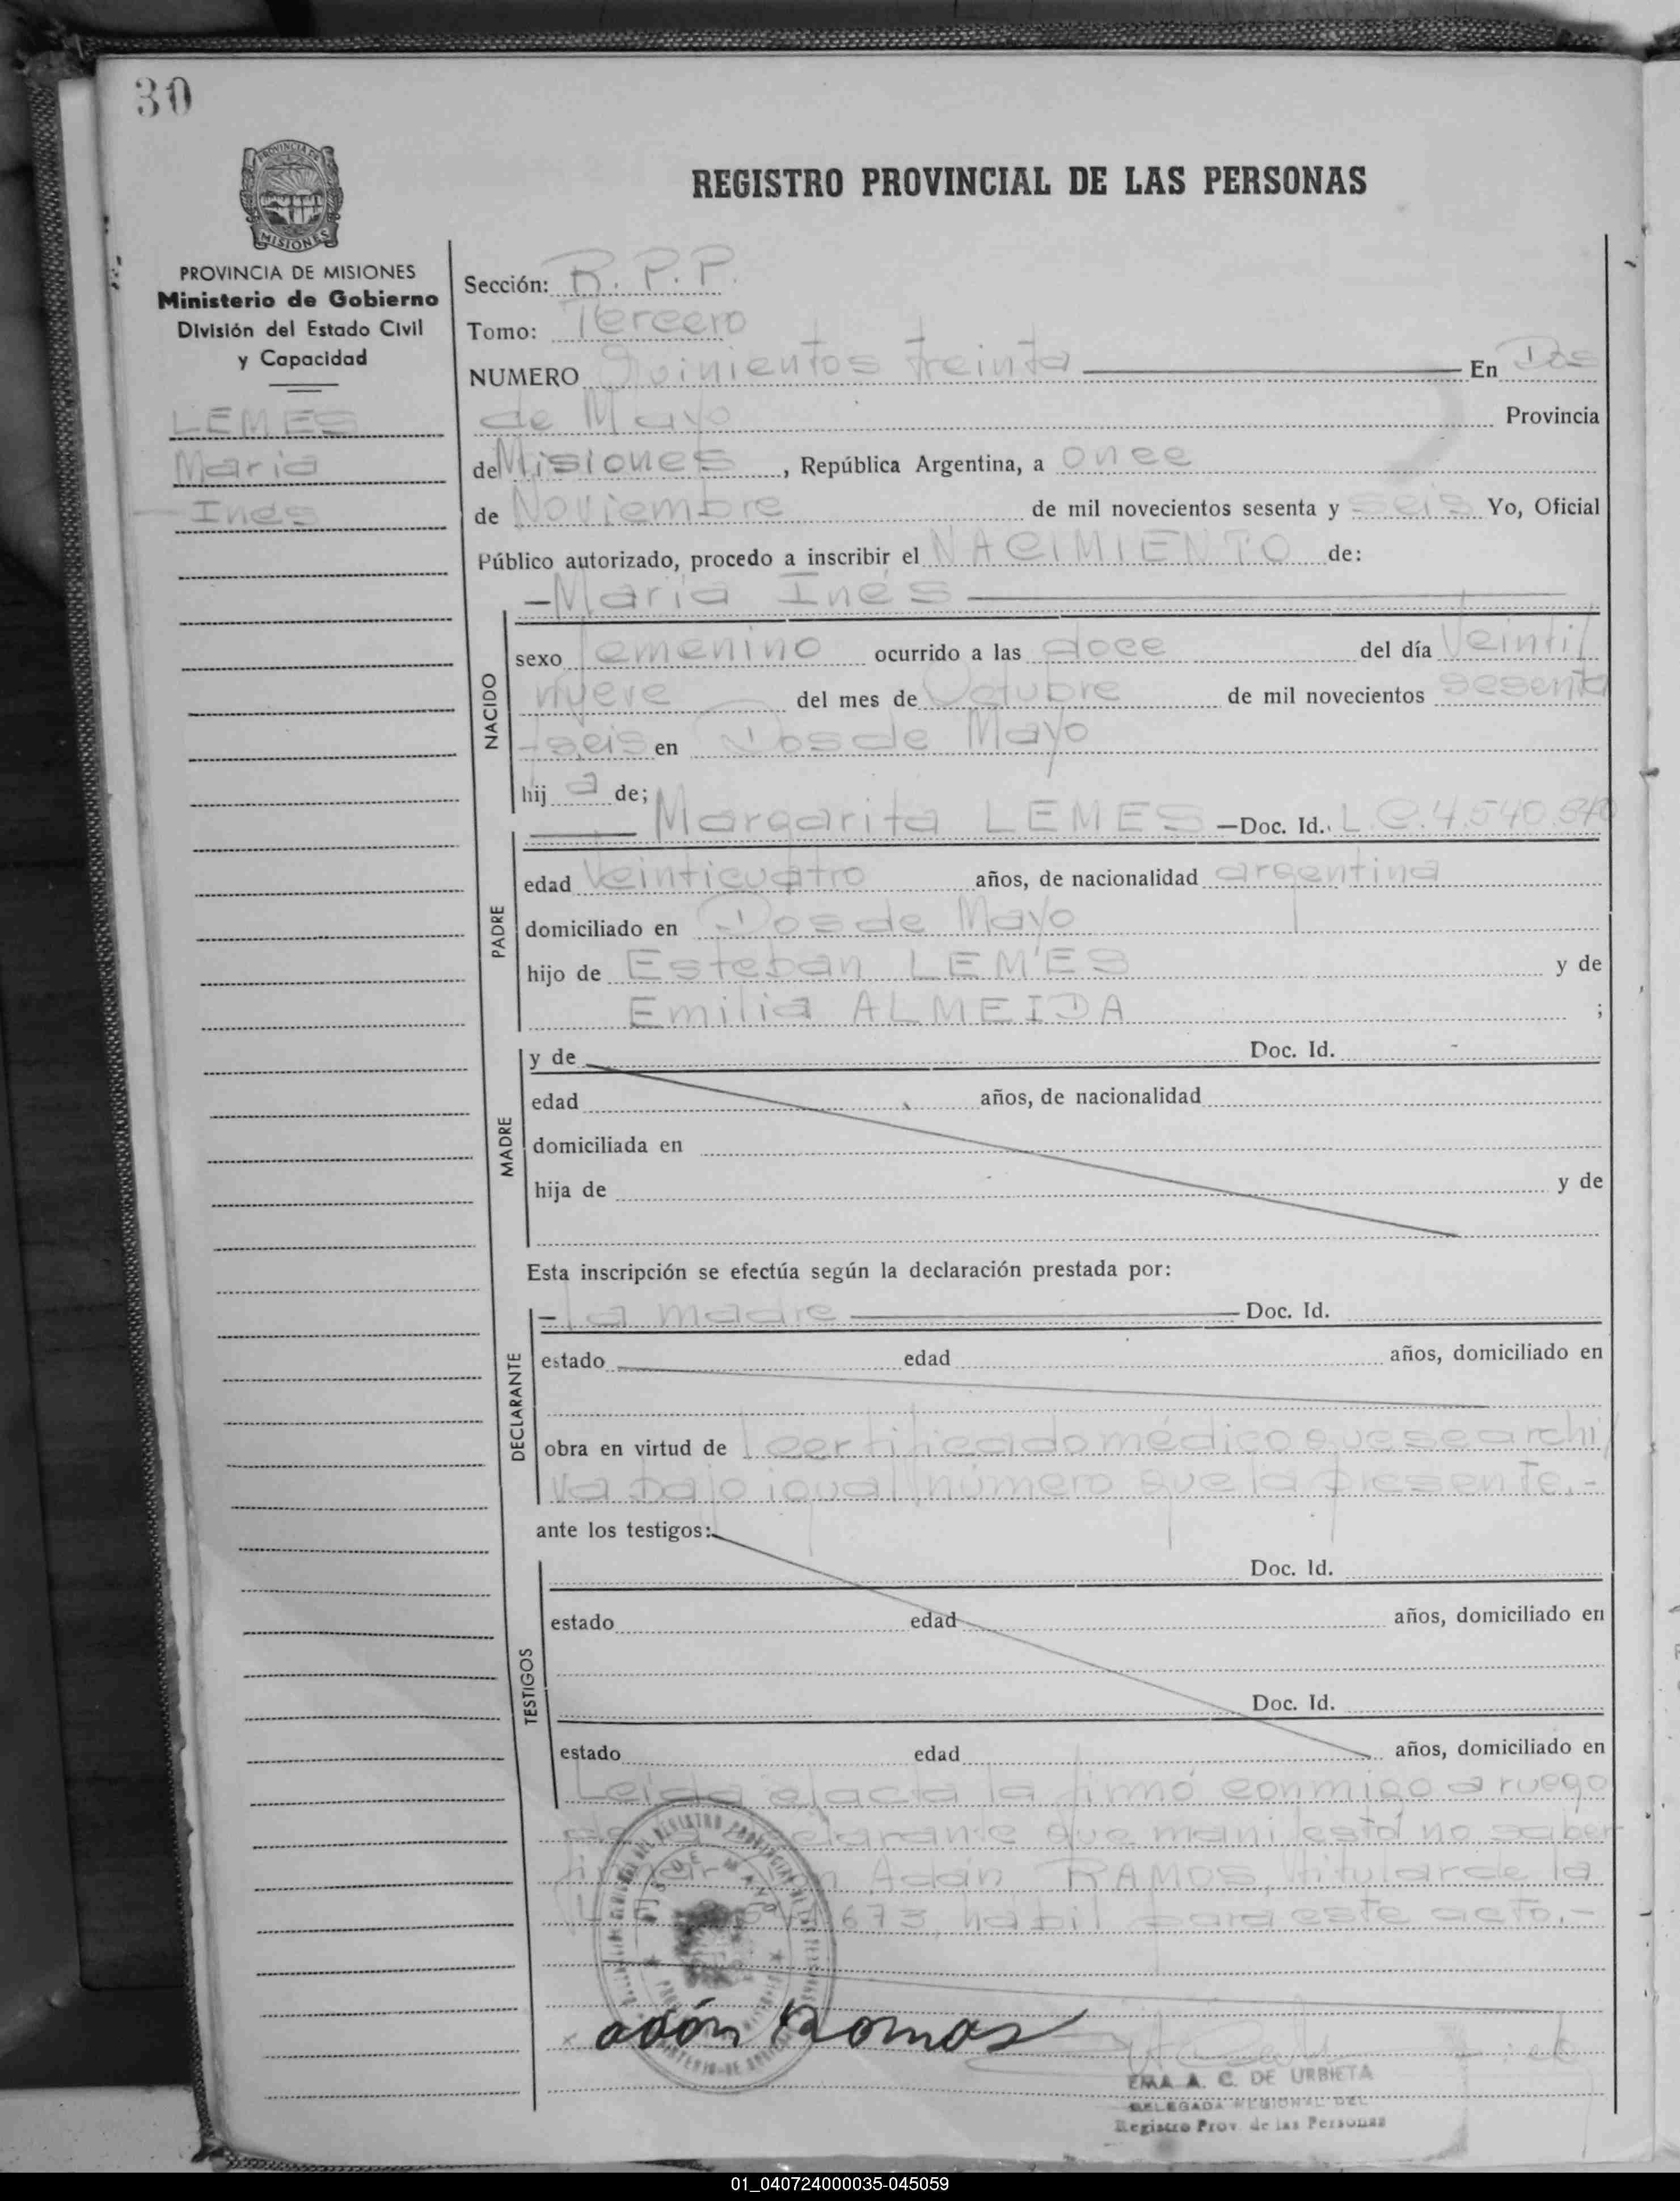 30
PROVINCIA DE
MISIONES
PROVINCIA DE MISIONES
Ministerio de Gobierno
División del Estado Civil
y Capacidad
LEMES
Maria
Ines
REGISTRO PROVINCIAL DE LAS PERSONAS
Sección: R. P. P.
Tomo: Tercero
NUMERO Quinientos treinta En Dos
de Mayo Provincia
de Misiones, República Argentina, a once
de Noviembre de mil novecientos sesenta y seis Yo, Oficial
Público autorizado, procedo a inscribir el NACIMIENTO de:
—Maria Inés
NACIDO
sexo femenino ocurrido a las doce del día Veinti/
nueve del mes de Octubre de mil novecientos sesenta
y seis en Dos de Mayo
hij a de;
Margarita LEMES —Doc. Id. L.C. 4.540.
PADRE
edad Veinticuatro años, de nacionalidad argentina
domiciliado en Dos de Mayo
hijo de Esteban LEMES y de
Emilia ALMEIDA ;
MADRE
y de Doc. Id. -
edad años, de nacionalidad
domiciliada en
hija de y de
Esta inscripción se efectúa según la declaración prestada por:
DECLARANTE
-la madre Doc. Id.
estado edad años, domiciliado en
obra en virtud de certificado médico que se archi/
va bajo igual número que la presente.-
ante los testigos:
TESTIGOS
Doc. Id.
estado edad años, domiciliado en
Doc. Id.
estado edad años, domiciliado en
Leida el acta la firmó conmigo a ruego
de la declarante que manifestó no saber
firmar don Adán RAMOS, titular de la
673, habil para este acto.-
adón Ramos
EMA A. C. DE URBIETA
DELEGADA REGIONAL DEL
Registro Prov. de las Personas
01_040724000035-045059